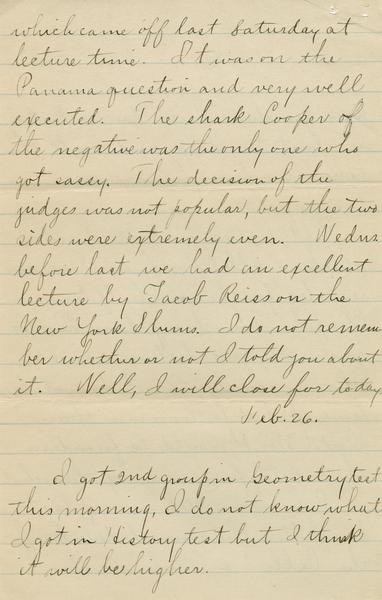 which came off last Saturday at
lecture time. It was on the
Panama question and very well
executed. The shark Cooper of
the negative was the only one who
got sassy. The decision of the
judges was not popular, but the two
sides were extremely even. Wednes.
before last we had an excellent
lecture by Jacob Reiss on the
New York Slums. I do not remem
ber whether or not I told you about
it. Well, I will close for today
Feb. 26.
I got 2nd group in Geometry test
this morning, I do not know what
I got in History test but I think
it will be higher.